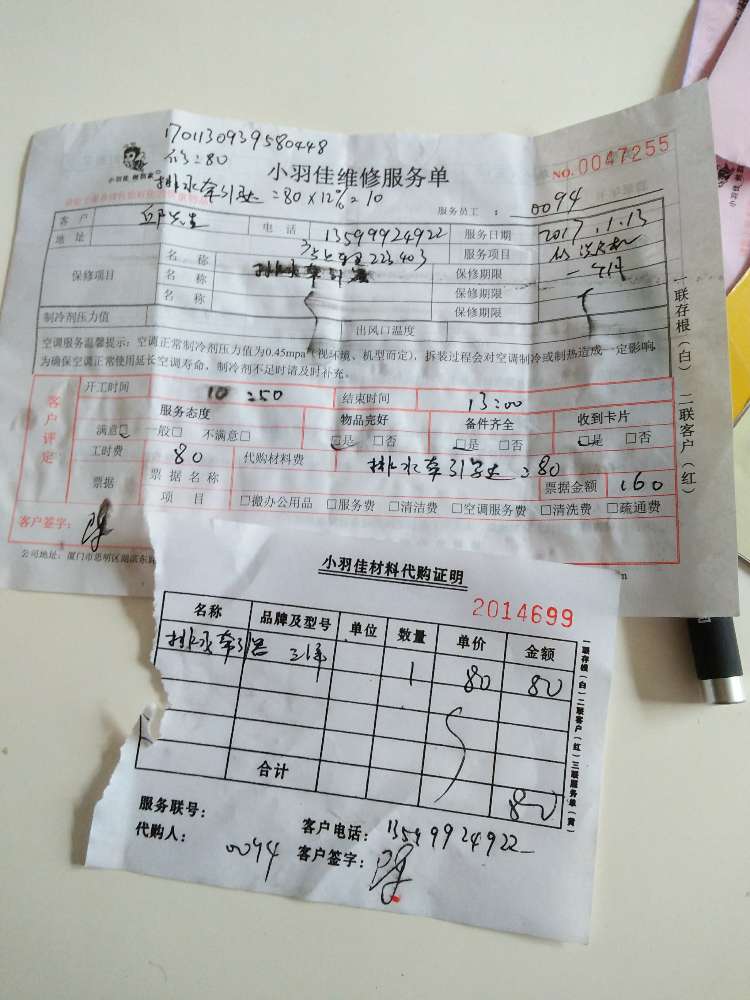 1701130939580448
修:80
小羽佳维修服务单
NO.0047255
排水牵引器:80×12%=10
服务员工: 0094
客户 邱先生 电话 13599924922 服务日期 2017.1.13
地址 服务项目 修洗衣机
保修项目 名称 排水牵引器 保修期限 一年
名称 保修期限
名称 保修期限
制冷剂压力值 出风口温度
空调服务温馨提示:空调正常制冷剂压力值为0.45mpa(视环境、机型而定),拆装过程会对空调制冷或制热造成一定影响,
为确保空调正常使用延长空调寿命,制冷剂不足时请及时补充。
一联存根(白) 二联客户(红)
客户评定
开工时间 10:50 结束时间 13:00
服务态度 物品完好 备件齐全 收到卡片
满意□ 一般□ 不满意□ □是 □否 □是 □否 □是 □否
工时费 80 代购材料费 排水牵引器:80
票据 票据名称 票据金额 160
项目 □搬办公用品 □服务费 □清洁费 □空调服务费 □清洗费 □疏通费
客户签字:
公司地址:厦门市思明区湖滨东路
小羽佳材料代购证明
2014699
名称 品牌及型号 单位 数量 单价 金额
排水牵引器 三洋 1 80 80
合计 80
一联存根(白)二联客户(红)三联服务单(黄)
服务联号:
客户电话: 13599924922
代购人: 0094
客户签字: